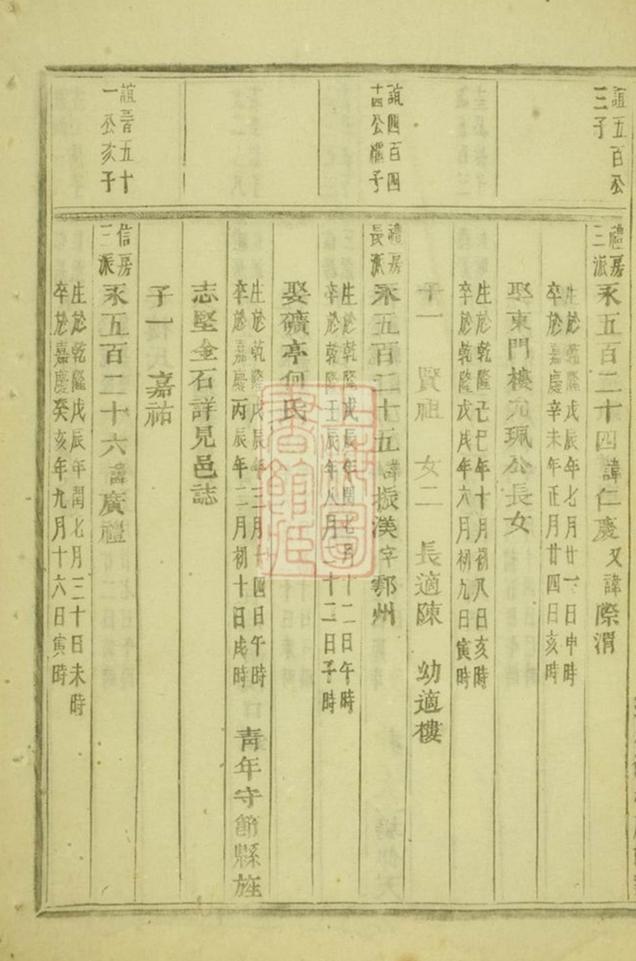 誼五百公
三子
禮房
三派
永五百二十四諱仁慶又諱際渭
生於乾隆戊辰年七月廿一日申時
卒於嘉慶辛未年正月廿四日亥時
娶東門樓元珮公長女
生於乾隆己巳年十月初八日亥時
卒於乾隆戊戌年六月初九日寅時
子一 賢祖 女二 長適陳 幼適樓
誼四百四
十四公櫂子
禮房
長派
永五百二十五諱振漢字鄂州
生於乾隆戊辰年閏七月十二日午時
卒於乾隆壬辰年八月十二日子時
娶礦亭何氏
生於乾隆戊辰年三月十四日午時
卒於嘉慶丙辰年二月初十日戌時
青年守節縣旌
志堅金石詳見邑誌
子一 嘉祐
誼百五十
一公亥子
信房
三派
永五百二十六諱廣禮
生於乾隆戊辰年閏七月三十日未時
卒於嘉慶癸亥年九月十六日寅時